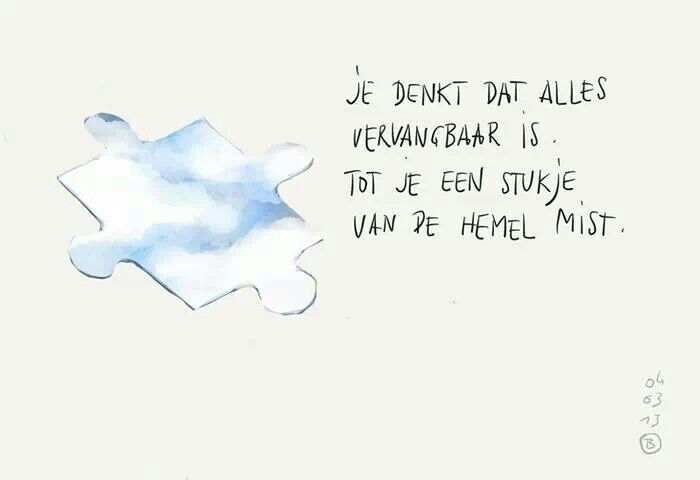 JE DENKT DAT ALLES
VERVANGBAAR IS.
TOT JE EEN STUKJE
VAN DE HEMEL MIST.
04
03
13
B